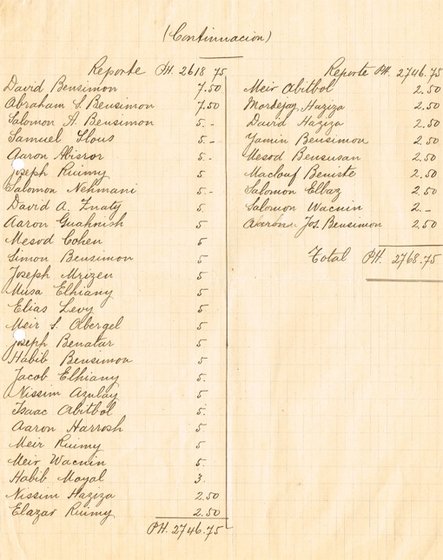 (Continuacion)
Reporte PH. 2618 75
David Bensimon 7.50
Abraham S. Bensimon 7.50
Salomon A. Bensimon 5.-
Samuel Ilous 5.-
Aaron Abisror 5.-
Joseph Ruimy 5
Salomon Nehmani 5.-
David A. Znaty 5.
Aaron Guahnish 5
Mesod Cohen 5
Simon Bensimon 5
Joseph Mrizen 5
Musa Elhiany 5
Elias Levy 5
Meir S. Abergel 5
Joseph Benatar 5
Habib Bensimon 5
Jacob Elhiany 5.
Nissim Azulay 5
Isaac Abitbol 5.
Aaron Harrosh 5
Meir Ruimy 5
Meir Wacnin 5.
Habib Moyal 3.
Nissim Haziza 2.50
Elazar Ruimy 2.50
PH. 2746.75
Reporte PH. 2746.75
Meir Abitbol 2.50
Mordejay Haziza 2.50
David Haziza 2.50
Yamin Bensimon 2.50
Mesod Bensusan 2.50
Maclouf Beniste 2.50
Salomon Elbaz 2.50
Salomon Wacnin 2.-
Aaron Jos. Bensimon 2.50
Total PH. 2768.75